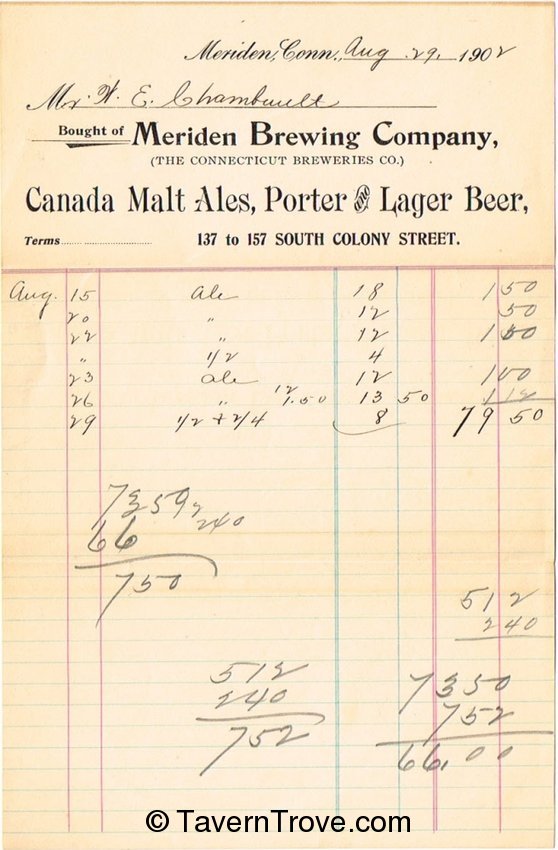 Meriden, Conn., Aug 29, 1902
Mr. W. E.
Bought of Meriden Brewing Company,
(THE CONNECTICUT BREWERIES CO.)
Canada Malt Ales, Porter AND Lager Beer,
Terms 137 to 157 SOUTH COLONY STREET.
Aug. 15 Ale 18 1 50
20 " 12 50
22 " 12 1
" 1/2 4
23 Ale 12 1 00
26 " 12 1.50 13 50 1 12
29 1/2 + 2/4 8 79 50
240
66
750
512
240
512
240
752
7350
752
66,00
© TavernTrove.com